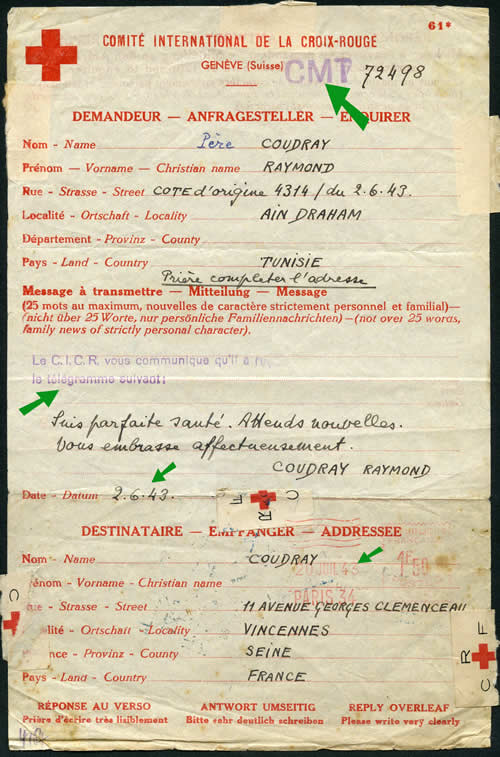 61*
COMITÉ INTERNATIONAL DE LA CROIX-ROUGE
GENÈVE (Suisse)
CMT 72498
DEMANDEUR — ANFRAGESTELLER — ENQUIRER
Nom - Name Père COUDRAY
Prénom — Vorname — Christian name RAYMOND
Rue - Strasse - Street COTE d'origine 4314/du 2.6.43.
Localité - Ortschaft - Locality AIN DRAHAM
Département - Provinz - County
Pays - Land - Country TUNISIE
Prière compléter l'adresse
Message à transmettre — Mitteilung — Message
(25 mots au maximum, nouvelles de caractère strictement personnel et familial)—
(nicht über 25 Worte, nur persönliche Familiennachrichten)—(not over 25 words,
family news of strictly personal character).
Le C.I.C.R. vous communique qu'il a
le télégramme suivant:
Suis parfaite santé. Attends nouvelles.
Vous embrasse affectueusement.
COUDRAY RAYMOND
Date - Datum 2.6.43.
C R F
DESTINATAIRE — EMPFÄNGER — ADDRESSEE
Nom - Name COUDRAY
20 JUIL 43 1F 50
Prénom - Vorname - Christian name
PARIS 34
Rue - Strasse - Street 11 AVENUE GEORGES CLEMENCEAU
Localité - Ortschaft - Locality VINCENNES
Province - Provinz - County SEINE
Pays - Land - Country FRANCE
C R F
RÉPONSE AU VERSO ANTWORT UMSEITIG REPLY OVERLEAF
Prière d'écrire très lisiblement Bitte sehr deutlich schreiben Please write very clearly